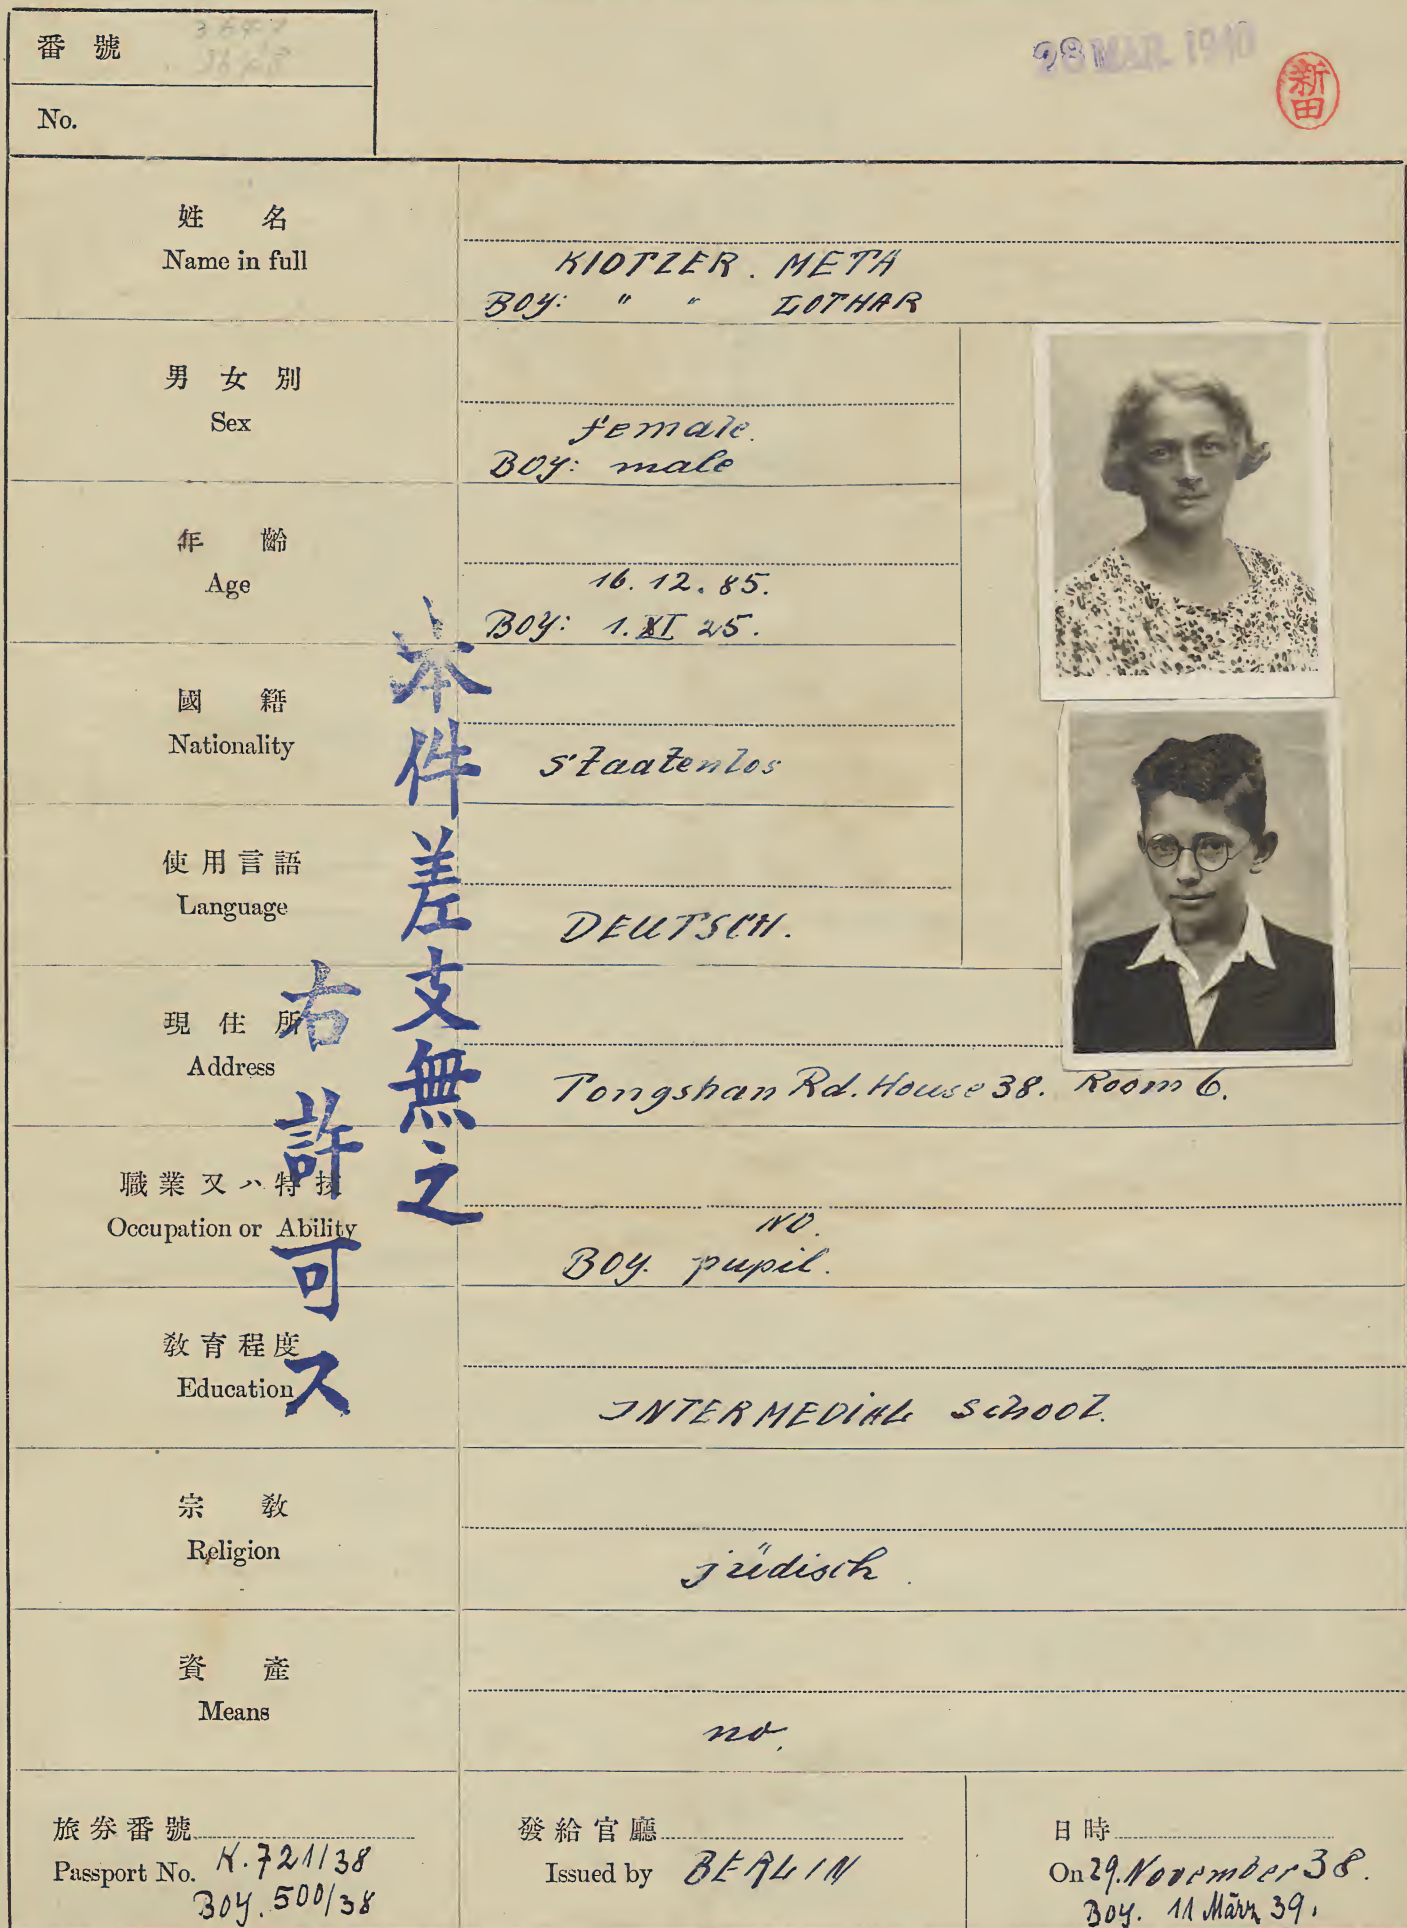 番號
No.
28 MAR. 1940
新田
姓名
Name in full
KlOTZER. META
BOY: " " LOTHAR
男女別
Sex
female.
BOY: male
年齡
Age
16. 12. 85.
BOY: 1. XI 25.
國籍
Nationality
staatenlos
使用言語
Language
DEUTSCH.
現住所
Address
Tongshan Rd. House 38. Room 6.
職業又ハ特技
Occupation or Ability
NO.
BOY. pupil.
敎育程度
Education
INTERMEDIAL school.
宗敎
Religion
jüdisch.
資產
Means
no.
本件差支無之
右許可ス
旅券番號
Passport No. K. 721/38
BOY. 500/38
發給官廳
Issued by BERLIN
日時
On 29. November 38.
BOY. 11 März 39.